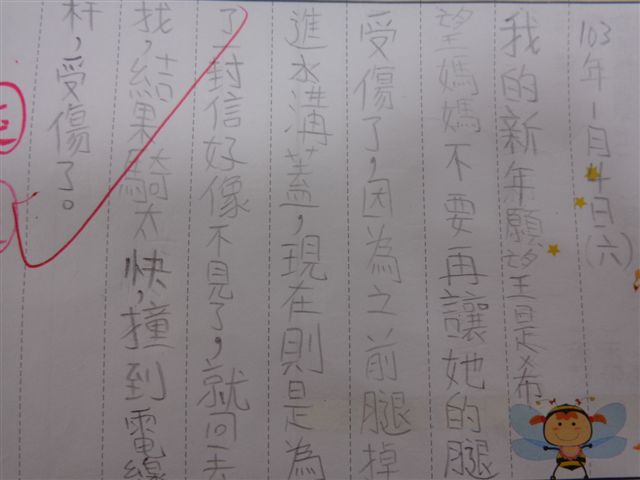 103年1月4日(六)
我的新年願望是希
望媽媽不要再讓她的腿
受傷了,因為之前腿掉
進水溝蓋,現在則是為
了一封信好像不見了,就回去
找,結果騎太快,撞到電線
杆,受傷了。